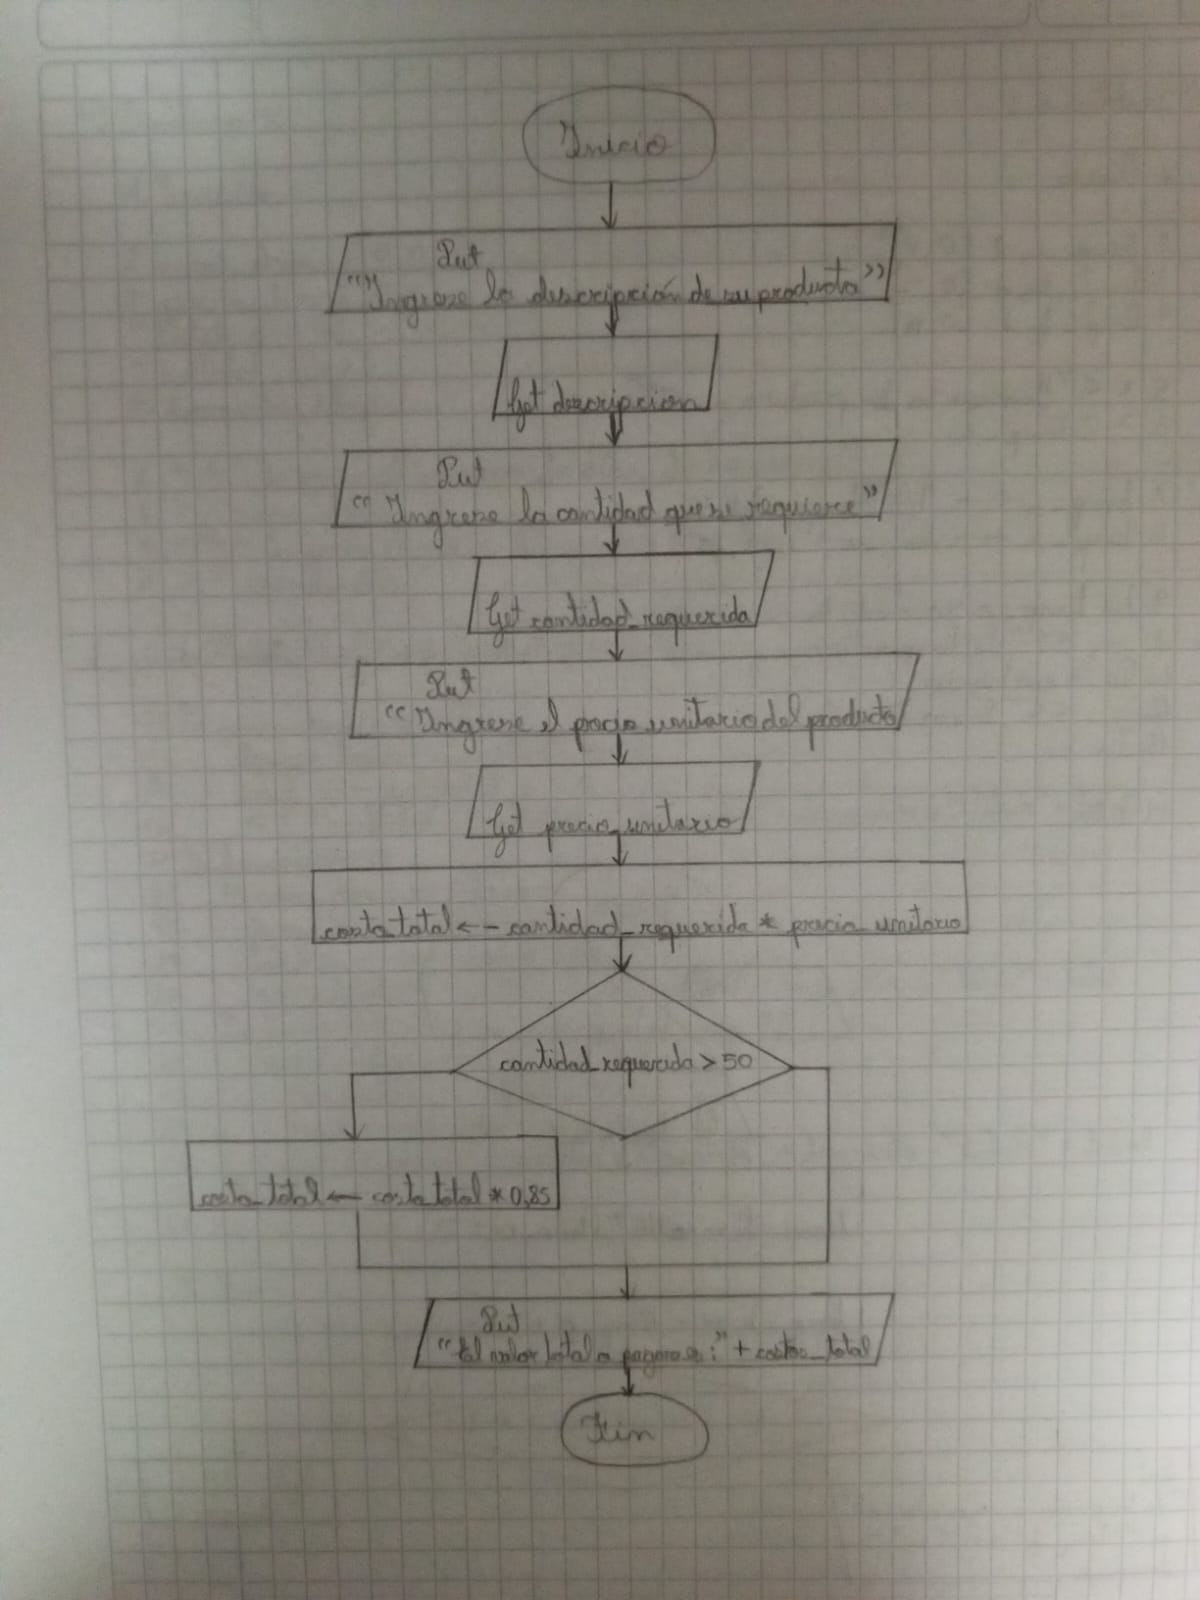 Inicio
Put
"Ingrese la descripción de su producto"
Get descripcion
Put
"Ingrese la cantidad que se requiere"
Get cantidad_requerida
Put
"Ingrese el precio unitario del producto
Get precio_unitario
costo_total <-- cantidad_requerida * precio_unitario
cantidad_requerida > 50
costo_total <-- costo_total * 0,85
Put
"El valor total a pagar es:" + costo_total
Fin